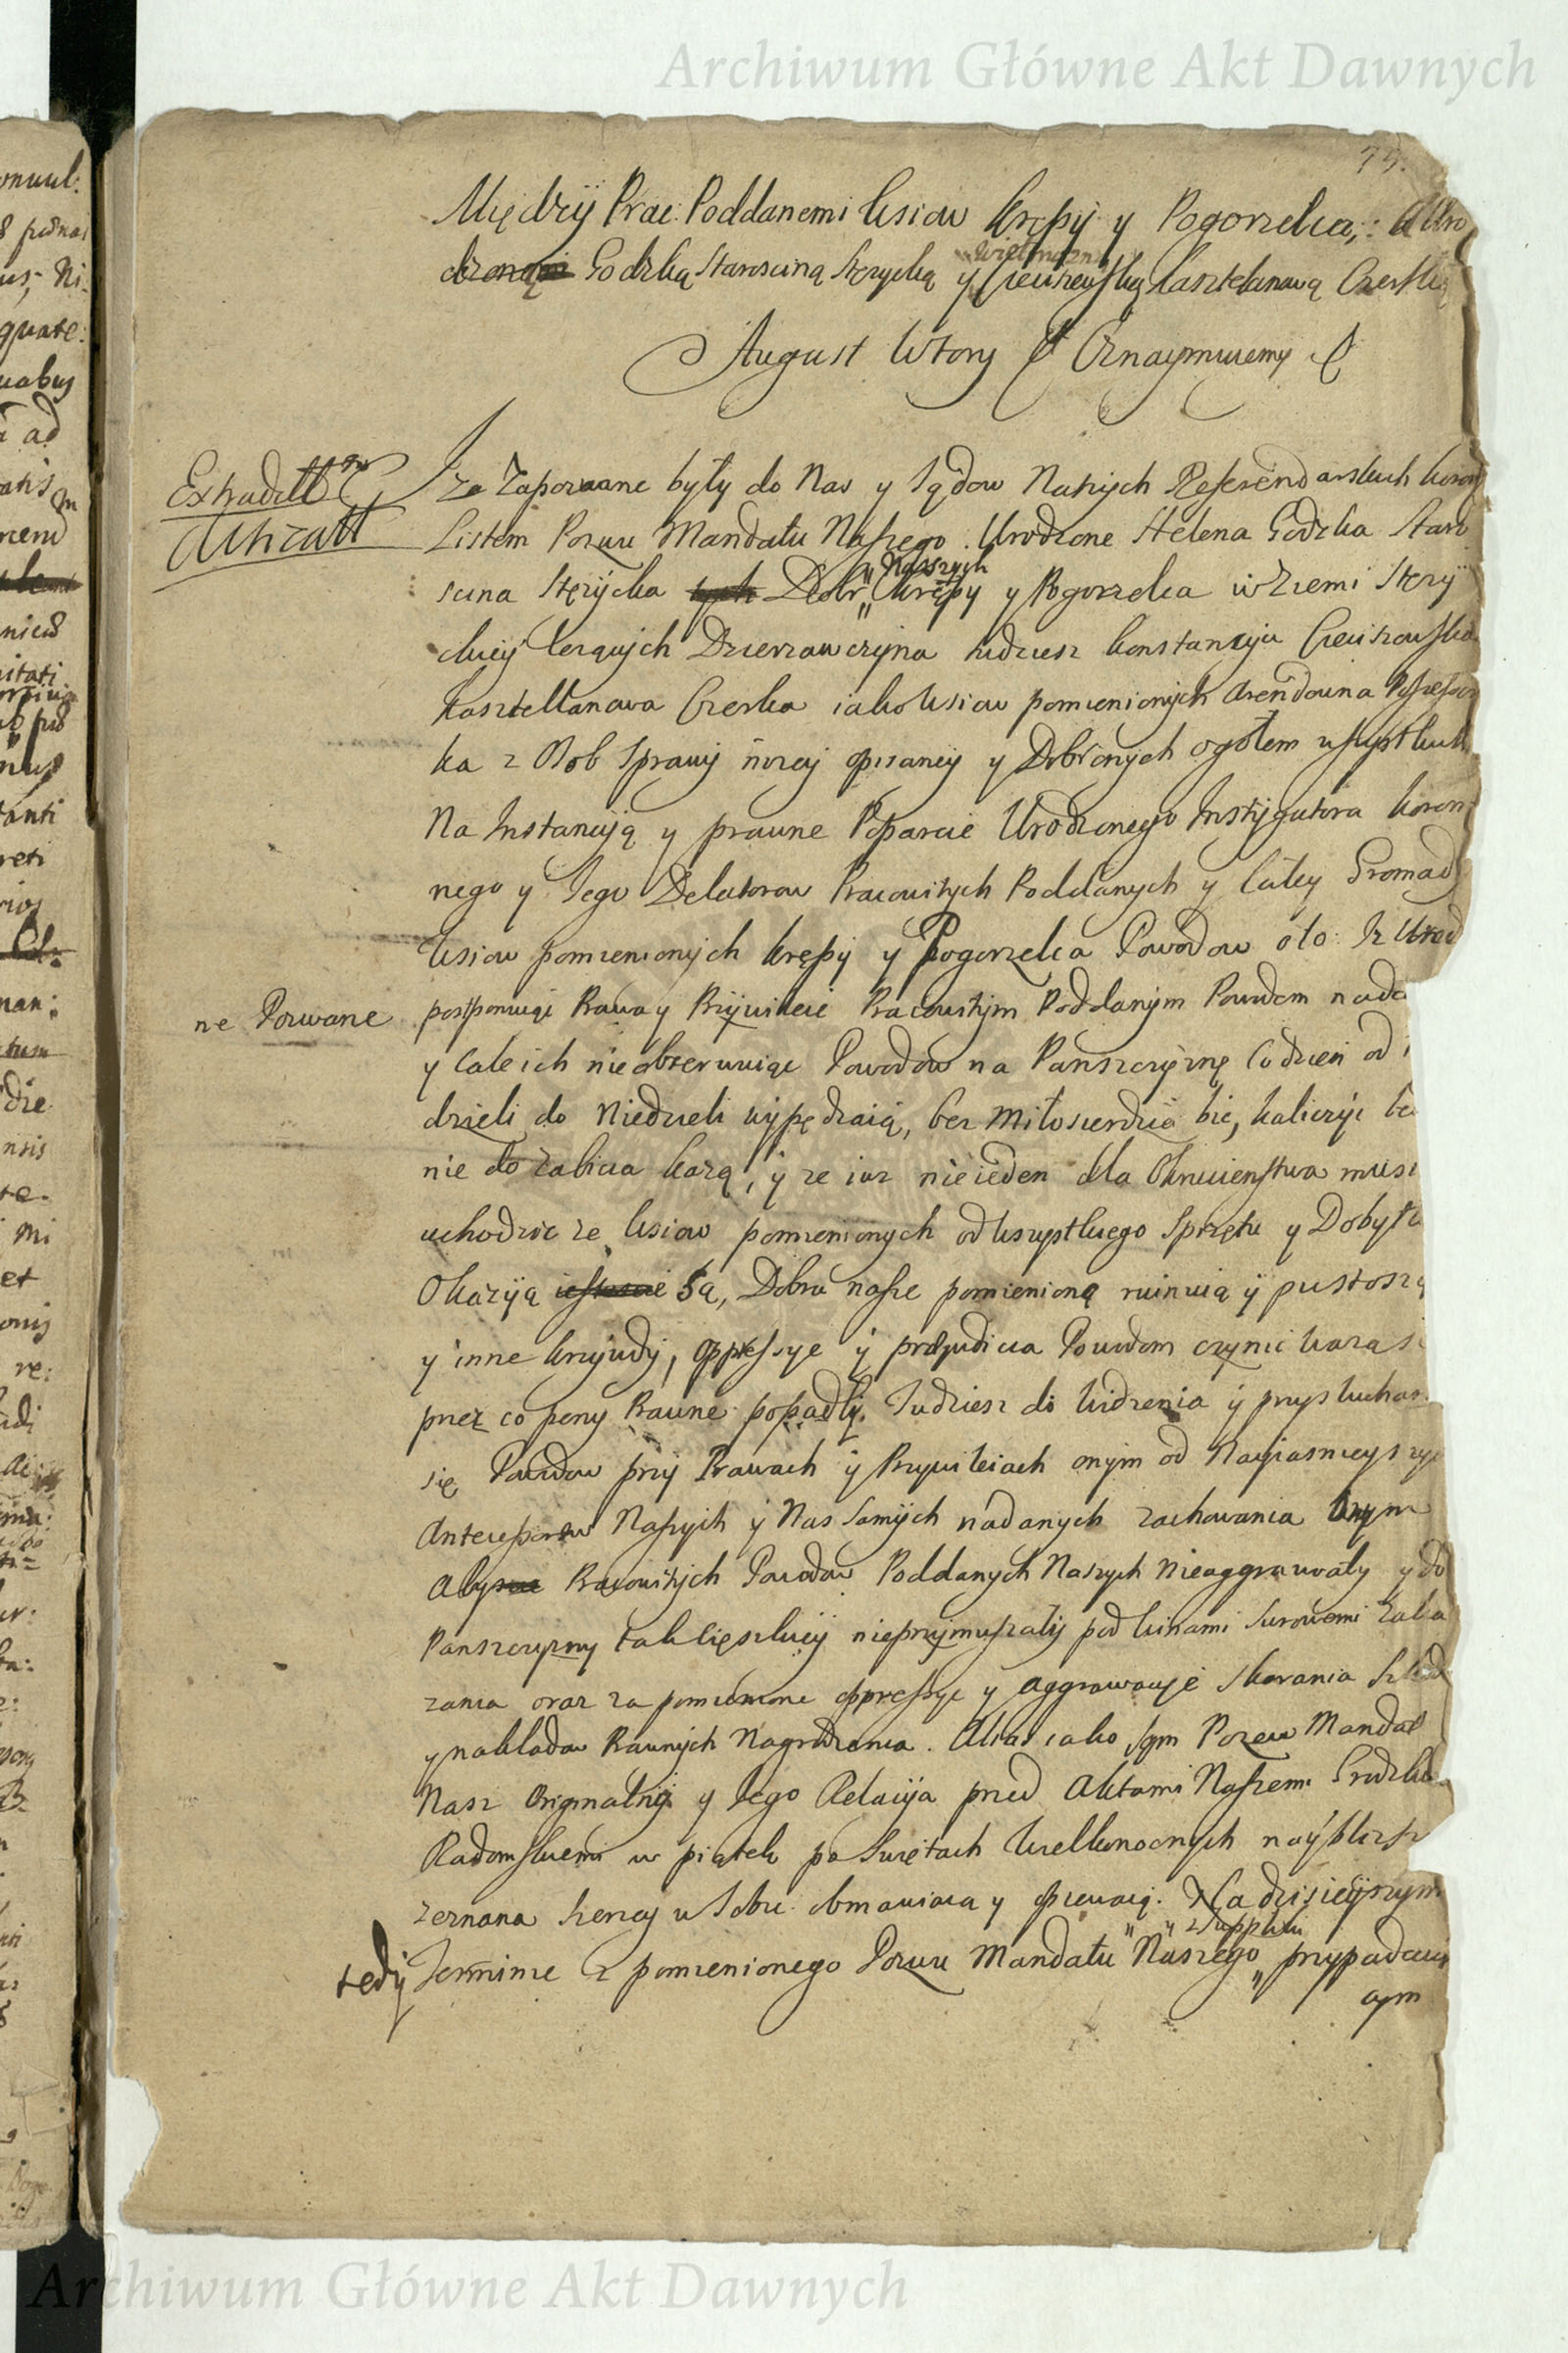 Archiwum Główne Akt Dawnych
75.
Między Prac: Poddanemi Wsiow Krępy y Pogorzelca, a Uro
dzoną Godzką Starosciną Stęzycką y Wielmożn Cieciszewską Kasztelanową Czerską
August Wtory & Oznaymuiemy &
Extradett
Iz Zapozwane były do Nas y Sądow Naszych Referendarskich Koron
Listem Pozwu Mandatu Naszego. Urodzone Helena Godzka Staro
scina Stęzycka Dobr „Naszych Krępy y Pogorzelca w Ziemi Stęzy
ckiey lezących Dzierzawczyna tudziesz Konstancyia Cieciszowska
Kasztellanowa Czerska iako Wsiow pomienionych Arendowna Possessor
ka z Osob Sprawy nizey opisaney y Dobr onych ogołem wszystkich
Na Instancyią y prawne Poparcie Urodzonego Instygatora Koron
nego y Jego Delatorow Pracowitych Poddanych y Całey Gromad
Wsiow pomienionych Krępy y Pogorzelca Powodow oto: Iz Urod
ne Pozwane postponuiąc Prawa y Przywileie Pracowitym Poddanym Powodom nada
y Cale ich nie obserwuiąc Powodow na Panszczyznę Co dzien od
dzieli do Niedzieli wypędzaią, bez Miłosierdzia bic, kaliczyc le
nie do Zabicia kazą, y ze iuz nieieden dla Okrucienstwa musi
uchodzic ze Wsiow pomienionych od Wszystkiego Sprzętu y Dobytk
Okazyą są, Dobra nasze pomienioną ruinuią y pustoszą
y inne krzywdy, oppressye y praeiudicia Powodom czynic kaza
przez co peny Prawne popadły. Tudziesz do Widzenia y przysłuchan
się Powodow przy Prawach y Przywileiach onym od Nayiasnieyszy
Antecessorow Naszych y Nas Samych nadanych zachowania Onym
Aby Pracowitych Powodow Poddanych Naszych nieaggrawowały y do
Panszczyzny tak cięszkiey nieprzymuszały pod Winami Surowemi Zaka
zania oraz za pomienione oppressye y aggrawacyie skarania Szkod
y nakładow Prawnych Nagrodzenia. Alias iako sam Pozew Mandat
Nasz Originalny y Jego Relacyia przed Aktami Naszemi Grodzkie
Radomskiemi w piątek po Swiętach Wielkonocnych nayblisz
zeznana szerzey w Sobie obmawiaia y opiewaią. Na dzisieyszym
tedy Terminie z pomienionego Pozwu Mandatu Naszego „y z Suppliki„ przypadaią
cym
Archiwum Główne Akt Dawnych